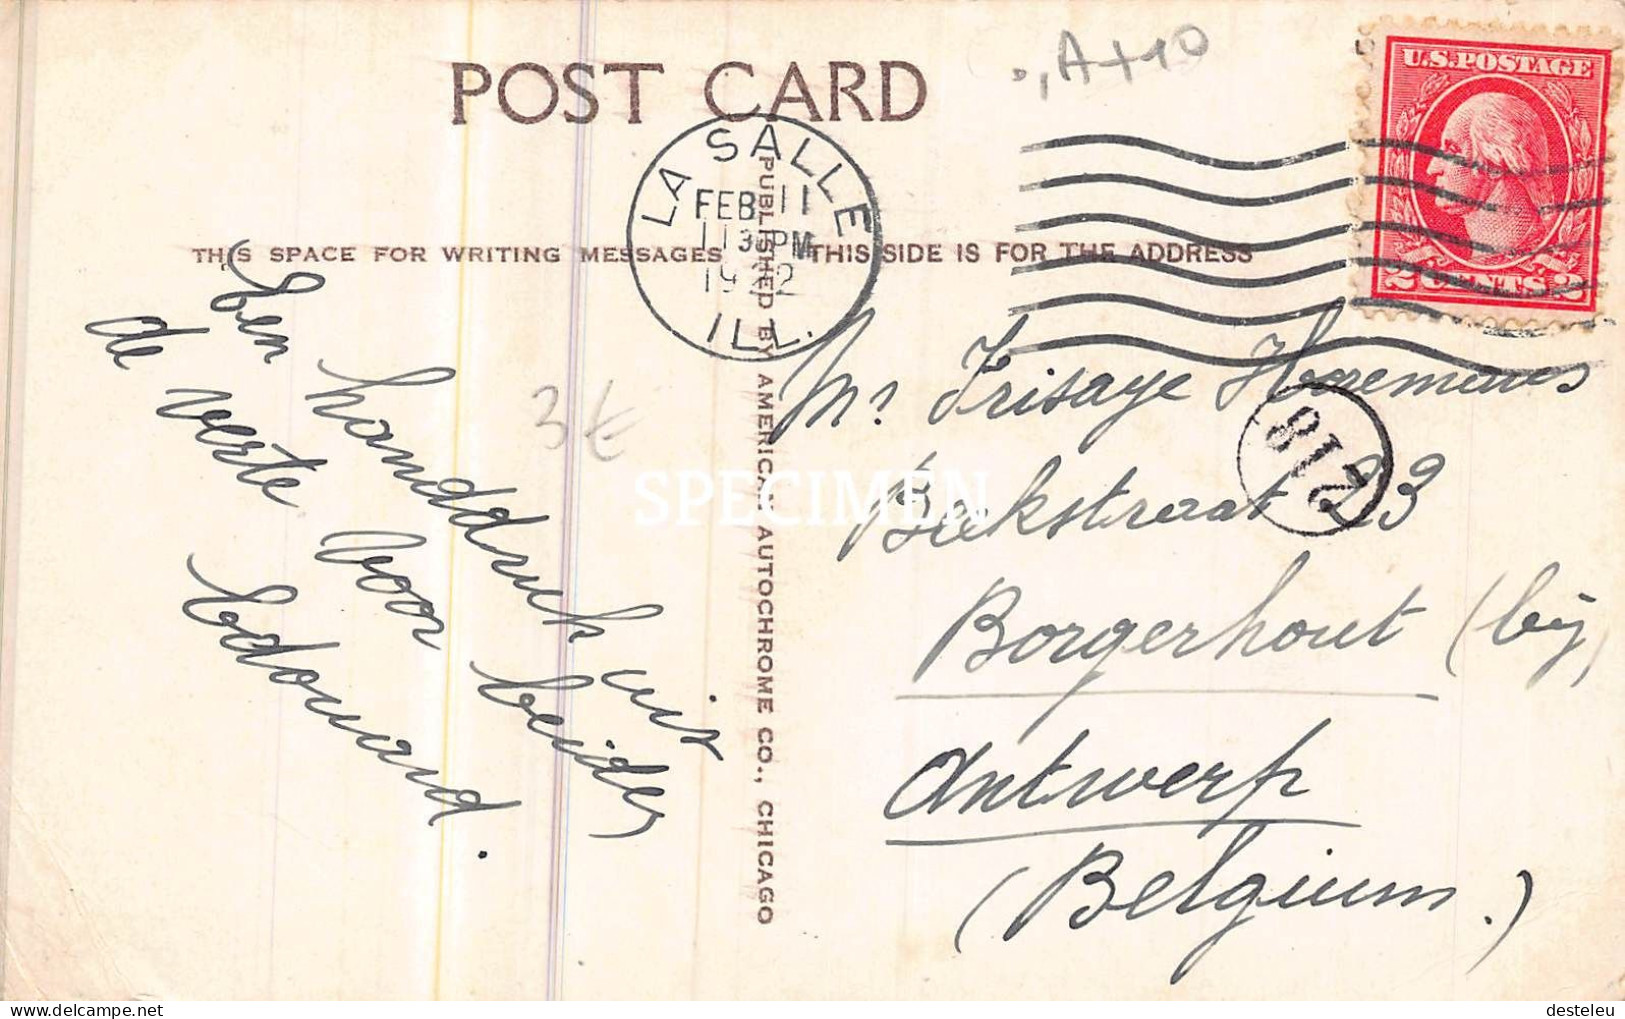 ., A+10
POST CARD
U.S. POSTAGE
2 CENTS 2
LA SALLE
FEB 11
1130PM
1922
ILL.
THIS SPACE FOR WRITING MESSAGES
THIS SIDE IS FOR THE ADDRESS
PUBLISHED BY AMERICAN AUTOCHROME CO., CHICAGO
Een handdruk uit
de verte voor beider
Edouard.
3€
Mr Frisaye
straat 23
Borgerhout (bij
Antwerp
(Belgium.)
218
SPECIMEN
desteleu